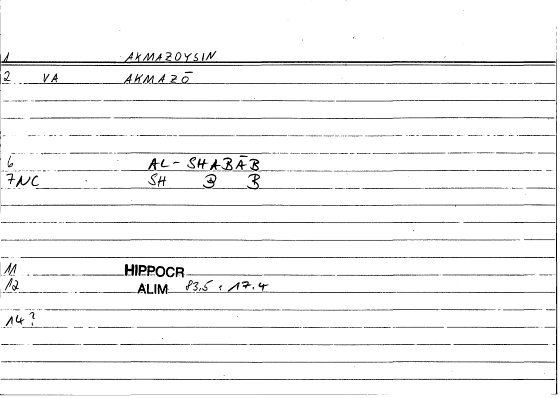 1 AKMAZOYSIN
2 VA AKMAZŌ
6 AL-SHABĀB
7NC SH B B
11 HIPPOCR
12 ALIM 83,5 : 17.4
14?